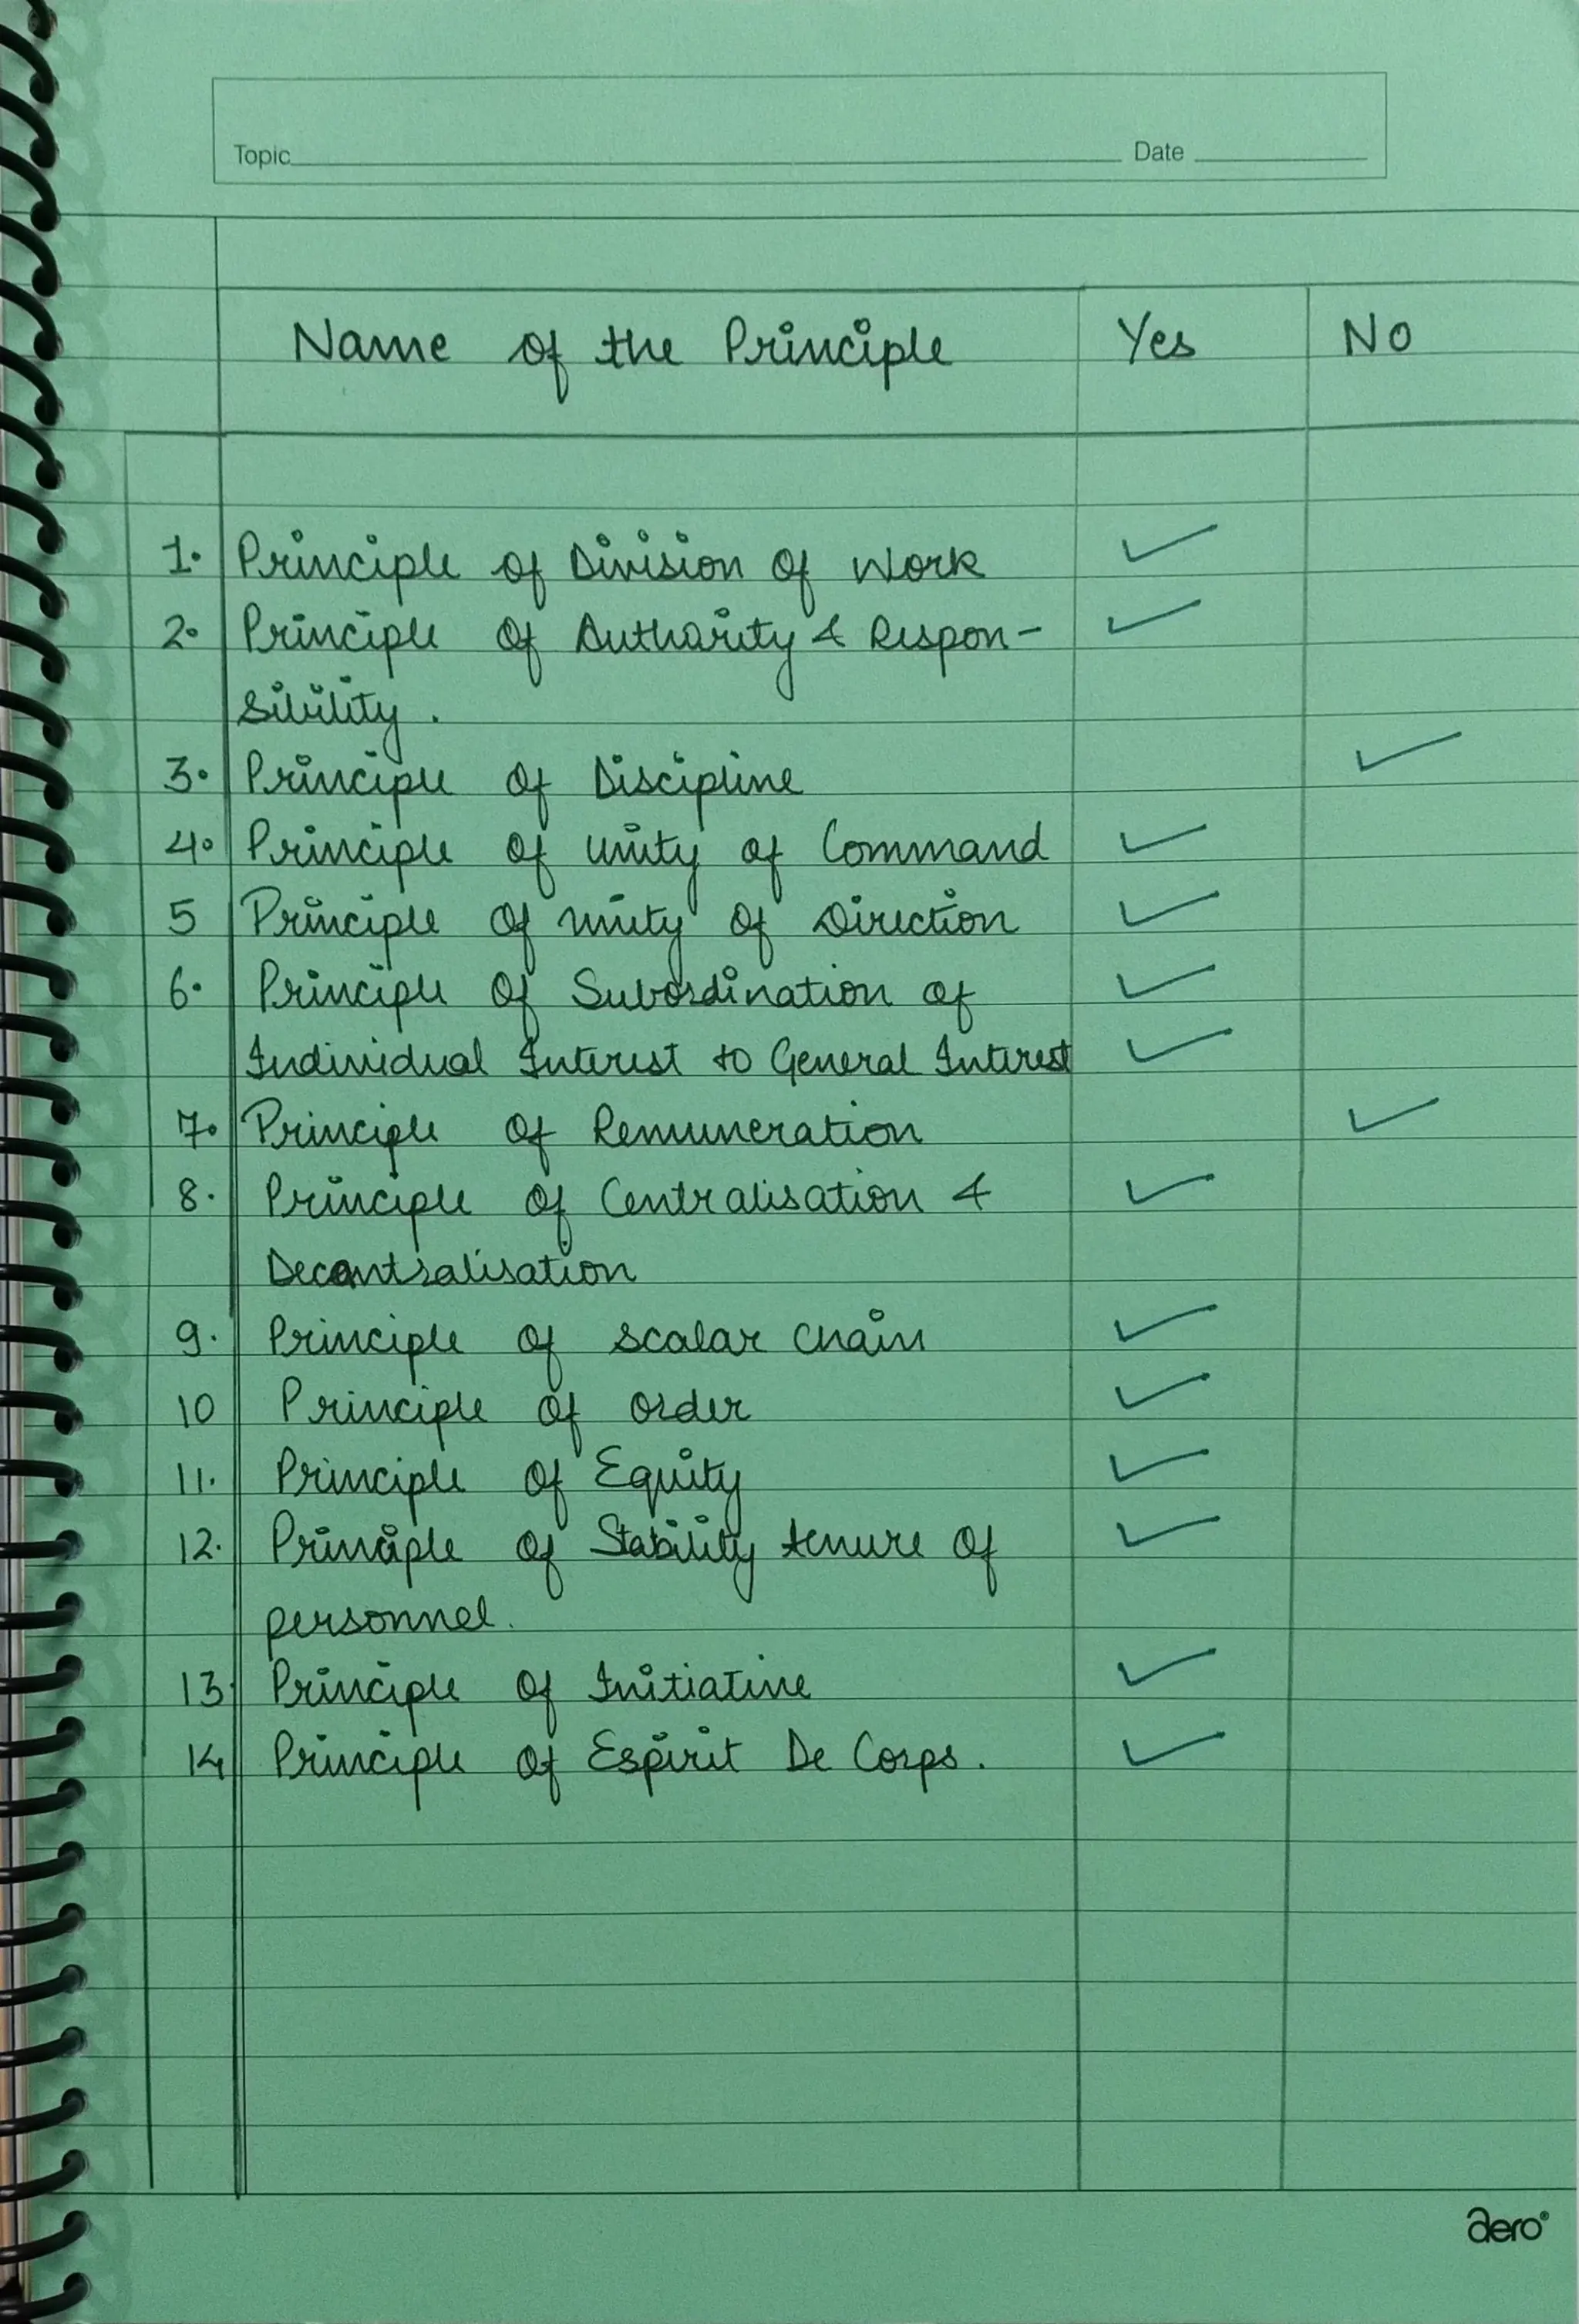 Topic Date
Name of the Principle Yes No
1. Principle of Division of Work ✓
2. Principle of Authority & Respon- ✓
sibility.
3. Principle of Discipline ✓
4. Principle of Unity of Command ✓
5 Principle of Unity of Direction ✓
6. Principle of Subordination of ✓
Individual Interest to General Interest ✓
7. Principle of Remuneration ✓
8. Principle of Centralisation & ✓
Decentralisation
9. Principle of scalar chain ✓
10 Principle of order ✓
11. Principle of Equity ✓
12. Principle of Stability tenure of ✓
personnel.
13. Principle of Initiative ✓
14 Principle of Espirit De Corps. ✓
aero